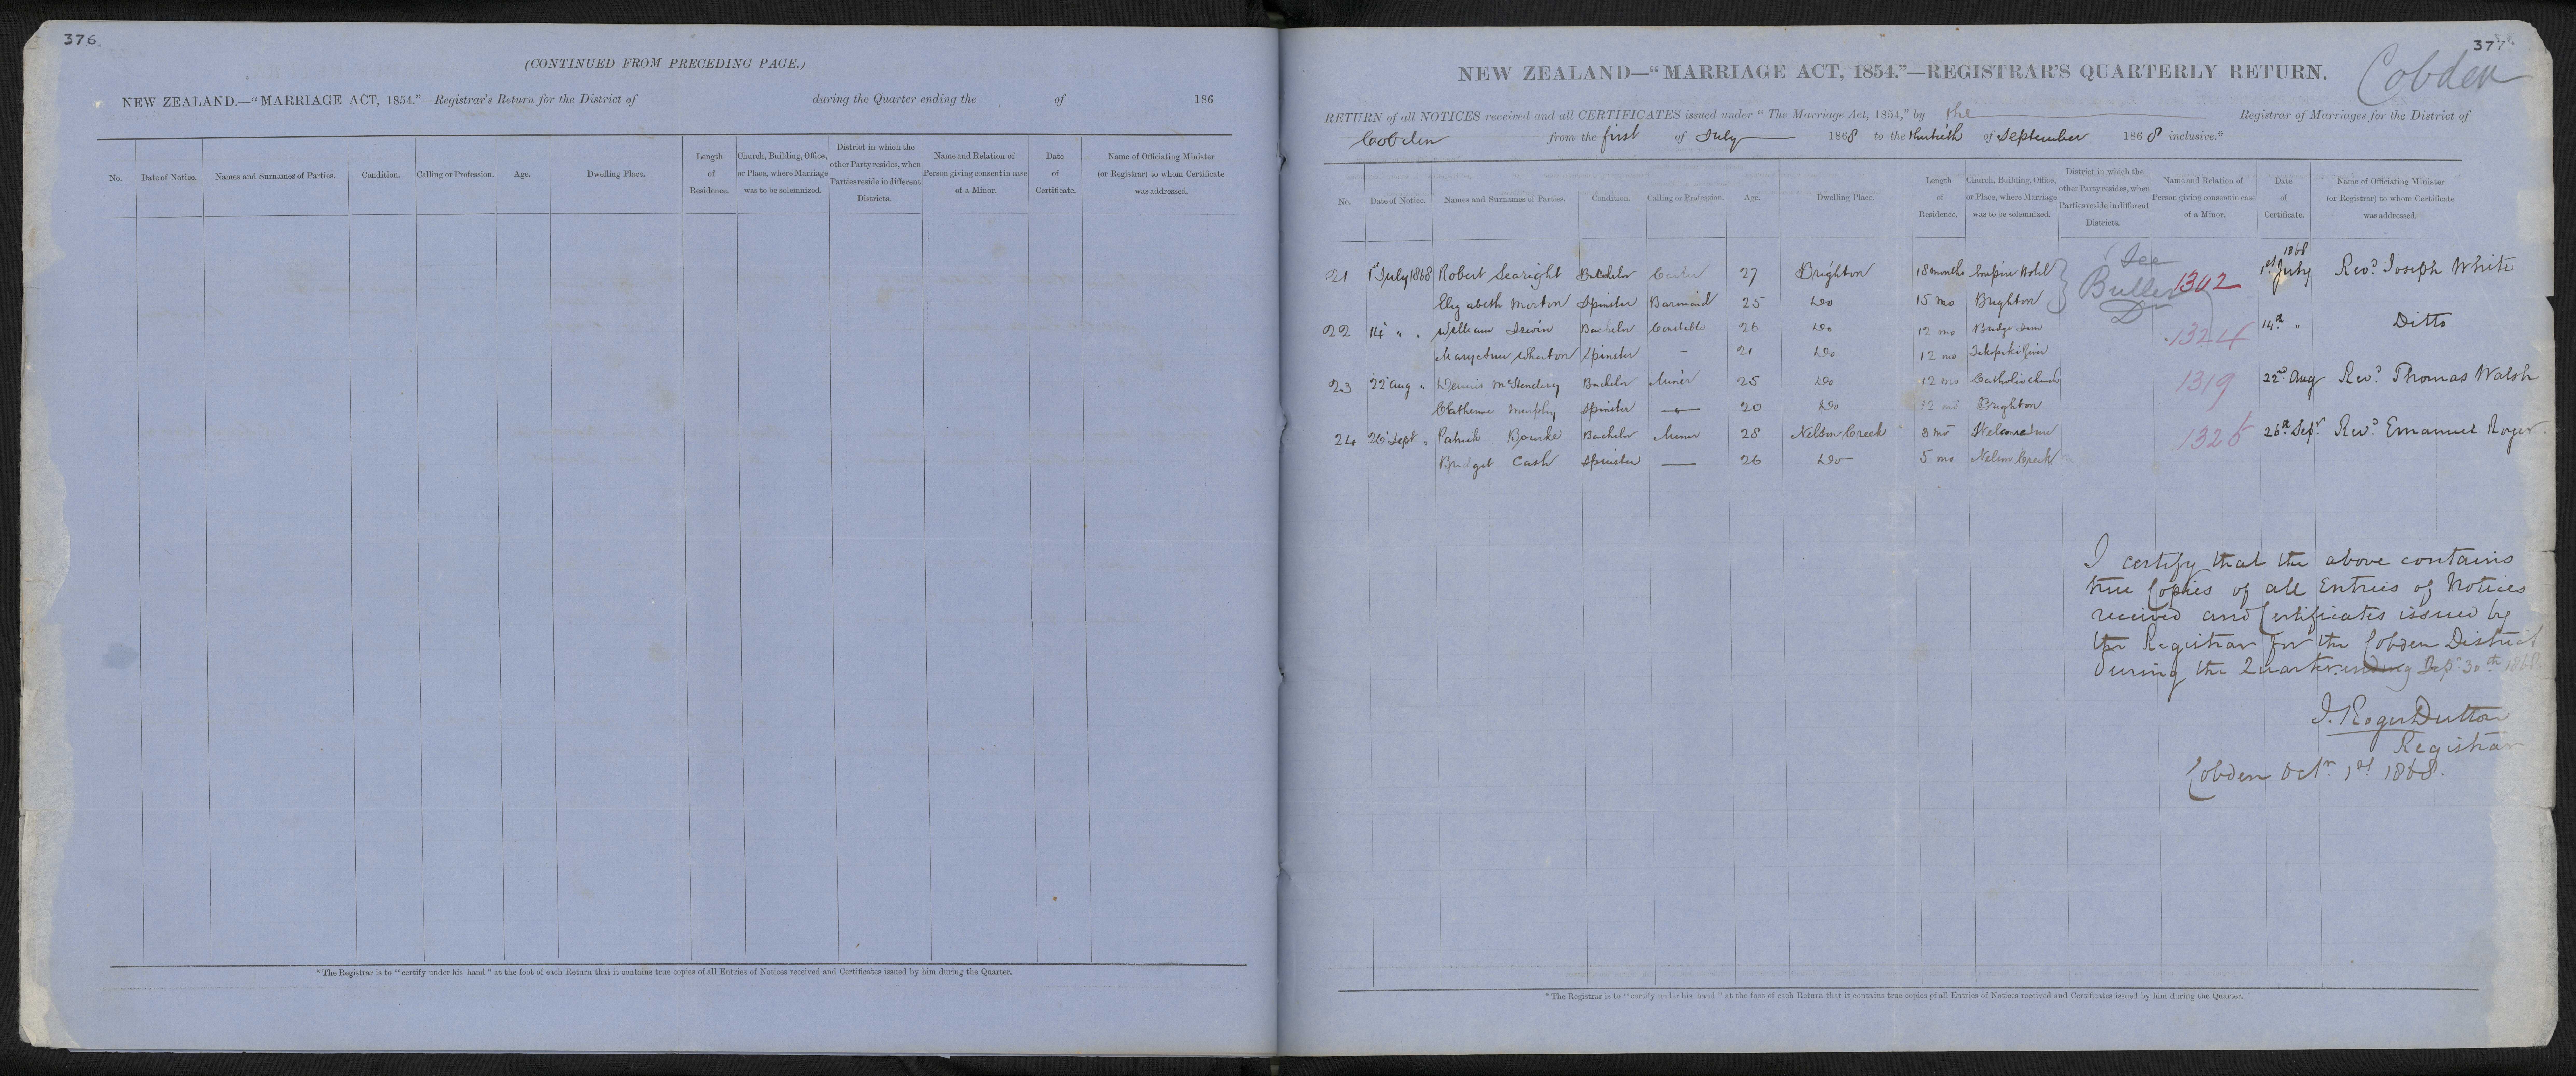 376
(CONTINUED FROM PRECEDING PAGE.)
NEW ZEALAND.—"MARRIAGE ACT, 1854."—Registrar's Return for the District of during the Quarter ending the of 186
No. Date of Notice. Names and Surnames of Parties. Condition. Calling or Profession. Age. Dwelling Place. Length of Residence. Church, Building, Office, or Place, where Marriage was to be solemnized. District in which the other Party resides, when Parties reside in different Districts. Name and Relation of Person giving consent in case of a Minor. Date of Certificate. Name of Officiating Minister (or Registrar) to whom Certificate was addressed.
* The Registrar is to "certify under his hand" at the foot of each Return that it contains true copies of all Entries of Notices received and Certificates issued by him during the Quarter.
377
Cobden
NEW ZEALAND—"MARRIAGE ACT, 1854."—REGISTRAR'S QUARTERLY RETURN.
RETURN of all NOTICES received and all CERTIFICATES issued under "The Marriage Act, 1854," by the Registrar of Marriages for the District of
Cobden from the first of July 1868 to the thirtieth of September 1868 inclusive.*
No. Date of Notice. Names and Surnames of Parties. Condition. Calling or Profession. Age. Dwelling Place. Length of Residence. Church, Building, Office, or Place, where Marriage was to be solemnized. District in which the other Party resides, when Parties reside in different Districts. Name and Relation of Person giving consent in case of a Minor. Date of Certificate. Name of Officiating Minister (or Registrar) to whom Certificate was addressed.
21 1st July 1868 Robert Searight Bachelor Carter 27 Brighton 18 months Empire Hotel See Buller 1302 1868 1st July Revd. Joseph White
Elizabeth Morton Spinster Barmaid 25 Do 15 mo Brighton
22 14 " " William Irwin Bachelor Constable 26 Do 12 mo Bridge Inn 1324 14th " Ditto
Mary Anne Wharton Spinster - 21 Do 12 mo River
23 22 Aug " Dennis Bachelor Miner 25 Do 12 mo Catholic Church 1319 22nd Aug Revd. Thomas Walsh
Catherine Murphy Spinster — 20 Do 12 mo Brighton
24 26 Sept " Patrick Bourke Bachelor Miner 28 Nelson Creek 8 mo Welcome Inn 1325 26th Sepr. Revd. Emanuel Royer
Bridget Cash Spinster — 26 Do 5 mo Nelson Creek
I certify that the above contains
true Copies of all Entries of Notices
received and Certificates issued by
the Registrar for the Cobden District
during the Quarter ending Sepr. 30th 1868
J. Roger Dutton
Registrar
Cobden Octr. 1st 1868.
* The Registrar is to "certify under his hand" at the foot of each Return that it contains true copies of all Entries of Notices received and Certificates issued by him during the Quarter.